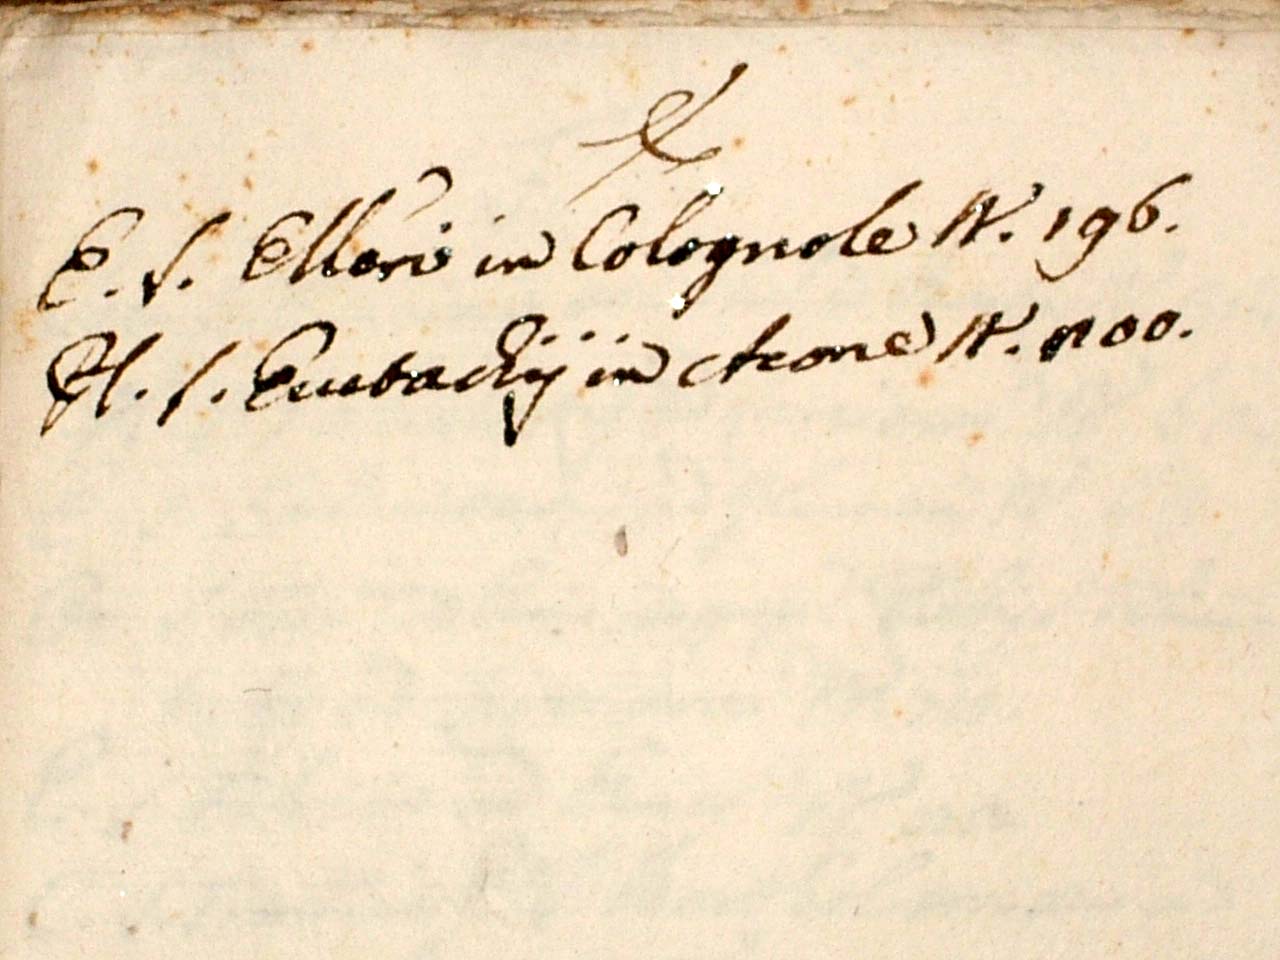 E
E. S. Elleri in Colognole N. 196.
Pl. S. Eustachij in Acone N. 200.